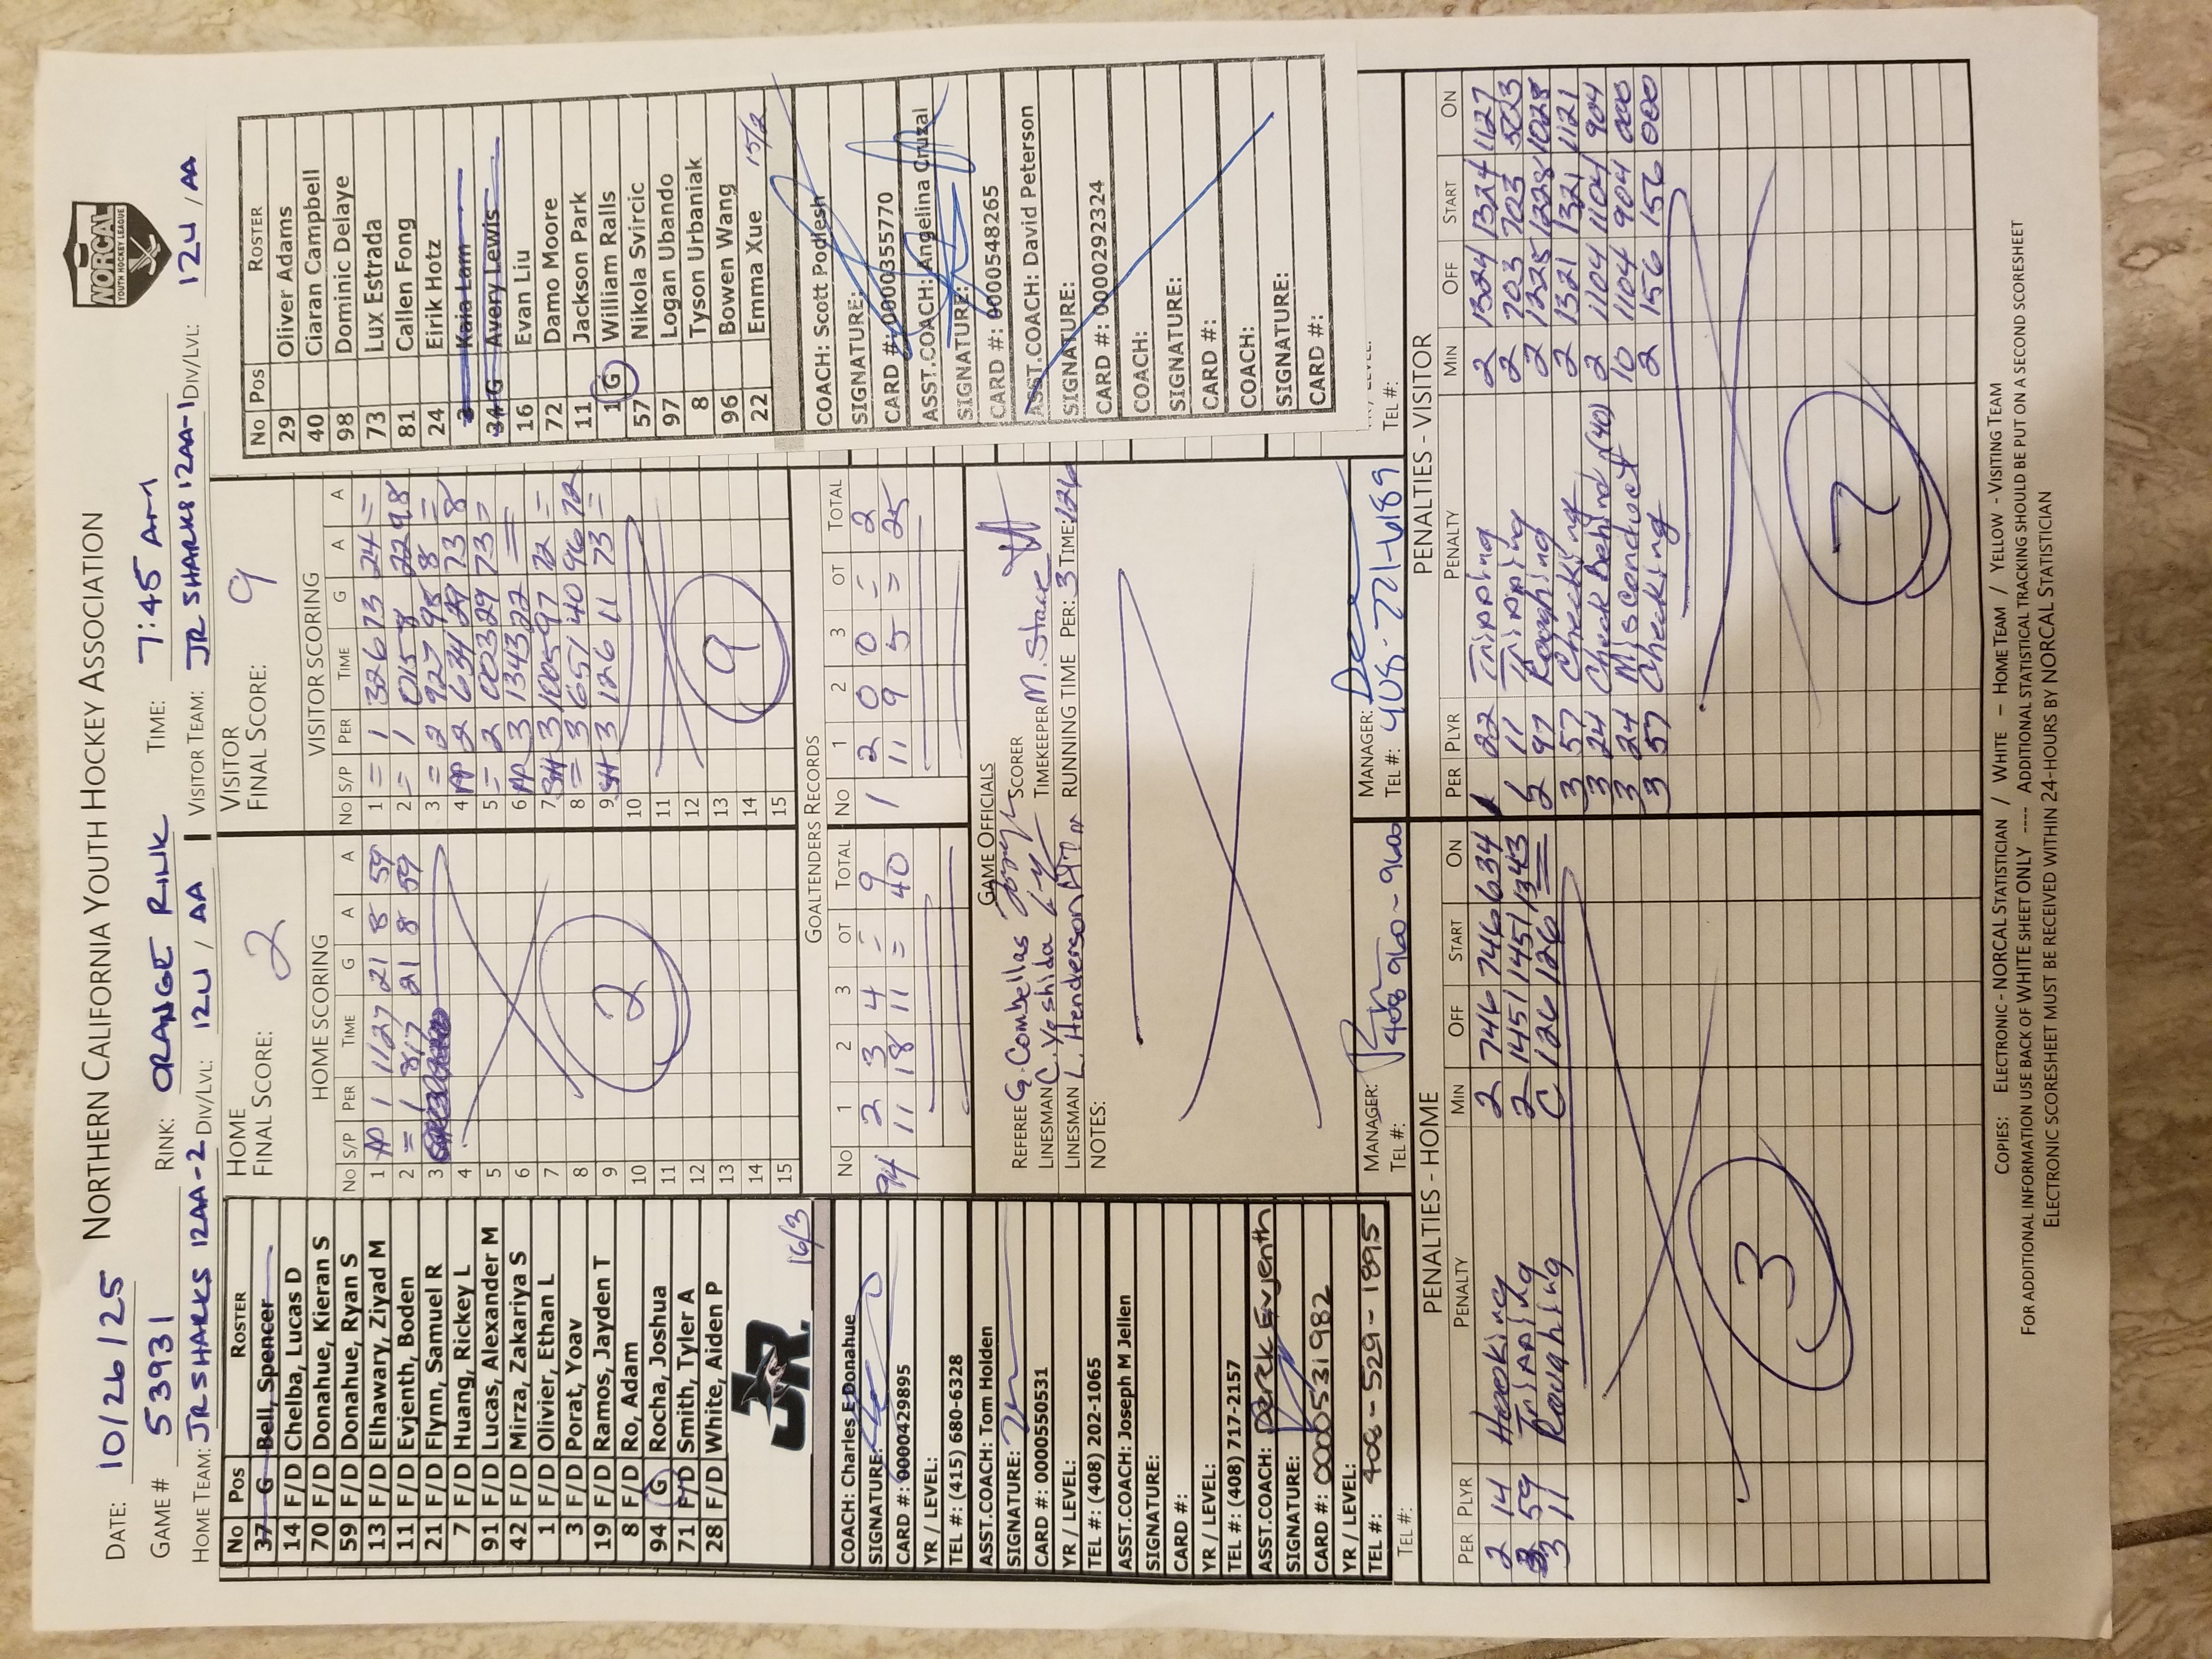 DATE: 10/26/25 NORTHERN CALIFORNIA YOUTH HOCKEY ASSOCIATION
NORCAL
YOUTH HOCKEY LEAGUE
GAME # 53931 RINK: ORANGE RINK TIME: 7:45 AM
HOME TEAM: JR SHARKS 12AA-2 DIV/LVL: 12U / AA VISITOR TEAM: JR SHARKS 12AA-1 DIV/LVL: 12U / AA
No Pos ROSTER
37 G Bell, Spencer
14 F/D Chelba, Lucas D
70 F/D Donahue, Kieran S
59 F/D Donahue, Ryan S
13 F/D Elhawary, Ziyad M
11 F/D Evjenth, Boden
21 F/D Flynn, Samuel R
7 F/D Huang, Rickey L
91 F/D Lucas, Alexander M
42 F/D Mirza, Zakariya S
1 F/D Olivier, Ethan L
3 F/D Porat, Yoav
19 F/D Ramos, Jayden T
8 F/D Ro, Adam
94 G Rocha, Joshua
71 F/D Smith, Tyler A
28 F/D White, Aiden P
JR.
16/3
COACH: Charles E Donahue
SIGNATURE:
CARD #: 0000429895
YR / LEVEL:
TEL #: (415) 680-6328
ASST.COACH: Tom Holden
SIGNATURE:
CARD #: 0000550531
YR / LEVEL:
TEL #: (408) 202-1065
ASST.COACH: Joseph M Jellen
SIGNATURE:
CARD #:
YR / LEVEL:
TEL #: (408) 717-2157
ASST.COACH: Derek Evjenth
SIGNATURE:
CARD #: 0000531982
YR / LEVEL:
TEL #: 408-529-1895
TEL #:
HOME
FINAL SCORE: 2
HOME SCORING
No S/P PER TIME G A A
1 PP 1 1127 21 8 59
2 = 1 817 21 8 59
3
4
5
6
7
8
9
10
11
12
13
14
15
2
VISITOR
FINAL SCORE: 9
VISITOR SCORING
No S/P PER TIME G A A
1 = 1 326 73 24 =
2 = 1 015 8 22 98
3 = 2 927 98 8 =
4 PP 2 634 29 73 8
5 = 2 003 29 73 =
6 PP 3 1343 22 = =
7 SH 3 1005 97 72 =
8 = 3 651 40 96 72
9 SH 3 126 11 73 =
10
11
12
13
14
15
9
GOALTENDERS RECORDS
No 1 2 3 OT TOTAL No 1 2 3 OT TOTAL
94 2 3 4 = 9 1 2 0 0 = 2
11 18 11 = 40 11 9 5 = 25
GAME OFFICIALS
REFEREE G. Combellas SCORER
LINESMAN C. Yoshida TIMEKEEPER M. Stace
LINESMAN L. Henderson RUNNING TIME PER: 3 TIME: 126
NOTES:
MANAGER:
TEL #: 408 960-9600
MANAGER:
TEL #: 408-221-6189
No Pos ROSTER
29 Oliver Adams
40 Ciaran Campbell
98 Dominic Delaye
73 Lux Estrada
81 Callen Fong
24 Eirik Hotz
3 Kaia Lam
34 G Avery Lewis
16 Evan Liu
72 Damo Moore
11 Jackson Park
1 G William Ralls
57 Nikola Svircic
97 Logan Ubando
8 Tyson Urbaniak
96 Bowen Wang
22 Emma Xue 15/2
COACH: Scott Podlesh
SIGNATURE:
CARD #: 0000355770
ASST.COACH: Angelina Cruzal
SIGNATURE:
CARD #: 0000548265
ASST.COACH: David Peterson
SIGNATURE:
CARD #: 0000292324
COACH:
SIGNATURE:
CARD #:
COACH:
SIGNATURE:
CARD #:
TEL #:
PENALTIES - HOME
PER PLYR PENALTY MIN OFF START ON
2 14 Hooking 2 746 746 634
3 59 Tripping 2 1451 1451 1343
3 11 Roughing C 126 126 =
3
PENALTIES - VISITOR
PER PLYR PENALTY MIN OFF START ON
1 22 Tripping 2 1324 1324 1127
11 Tripping 2 703 703 5023
2 97 Roughing 2 1228 1228 1028
3 57 Checking 2 1321 1321 1121
3 24 Check Behind (40) 2 1104 1104 904
3 24 Misconduct 10 1104 904 000
3 57 Checking 2 156 156 000
7
COPIES: ELECTRONIC - NORCAL STATISTICIAN / WHITE - HOME TEAM / YELLOW - VISITING TEAM
FOR ADDITIONAL INFORMATION USE BACK OF WHITE SHEET ONLY ---- ADDITIONAL STATISTICAL TRACKING SHOULD BE PUT ON A SECOND SCORESHEET
ELECTRONIC SCORESHEET MUST BE RECEIVED WITHIN 24-HOURS BY NORCAL STATISTICIAN